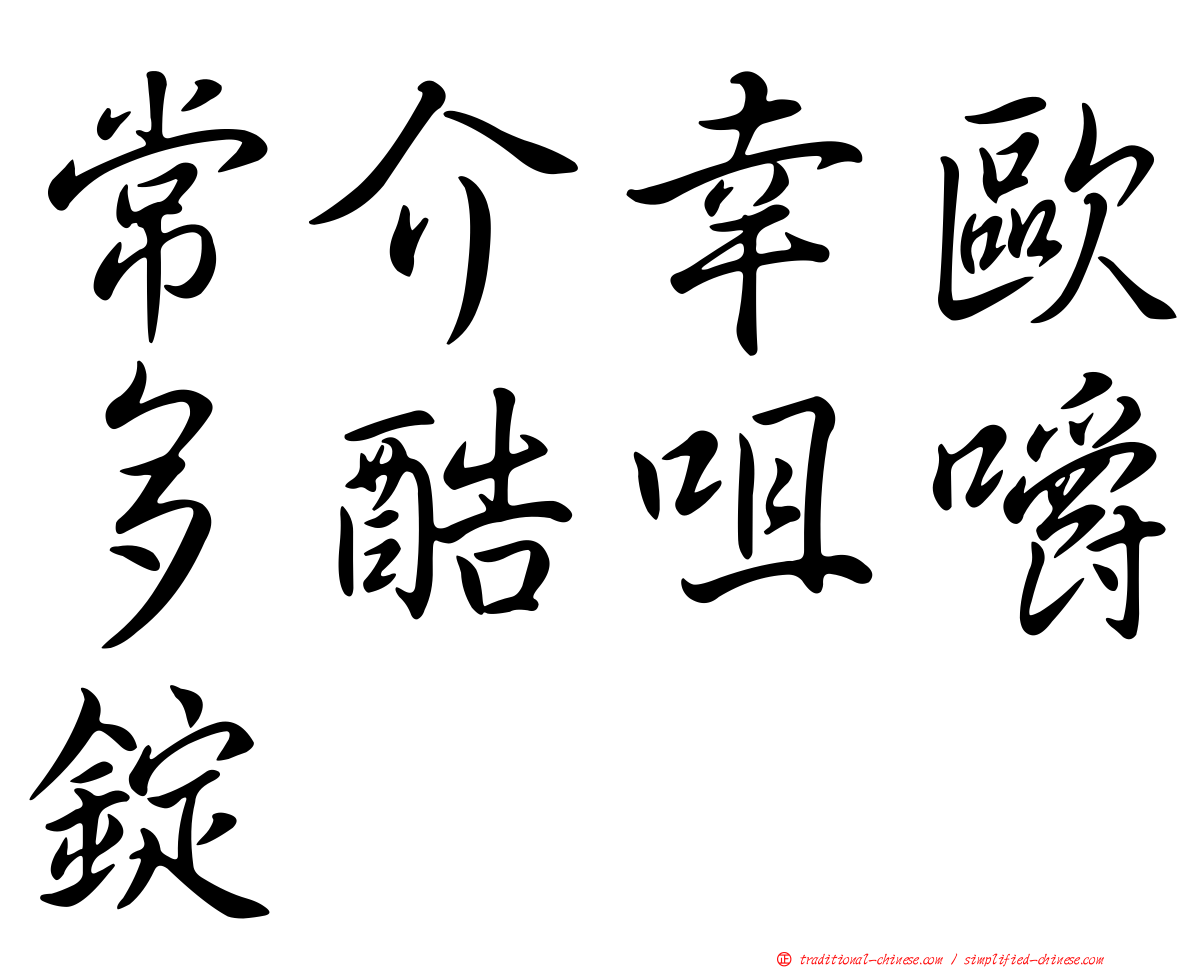 常介幸歐
多酷咀嚼
錠
正 traditional-chinese.com / simplified-chinese.com